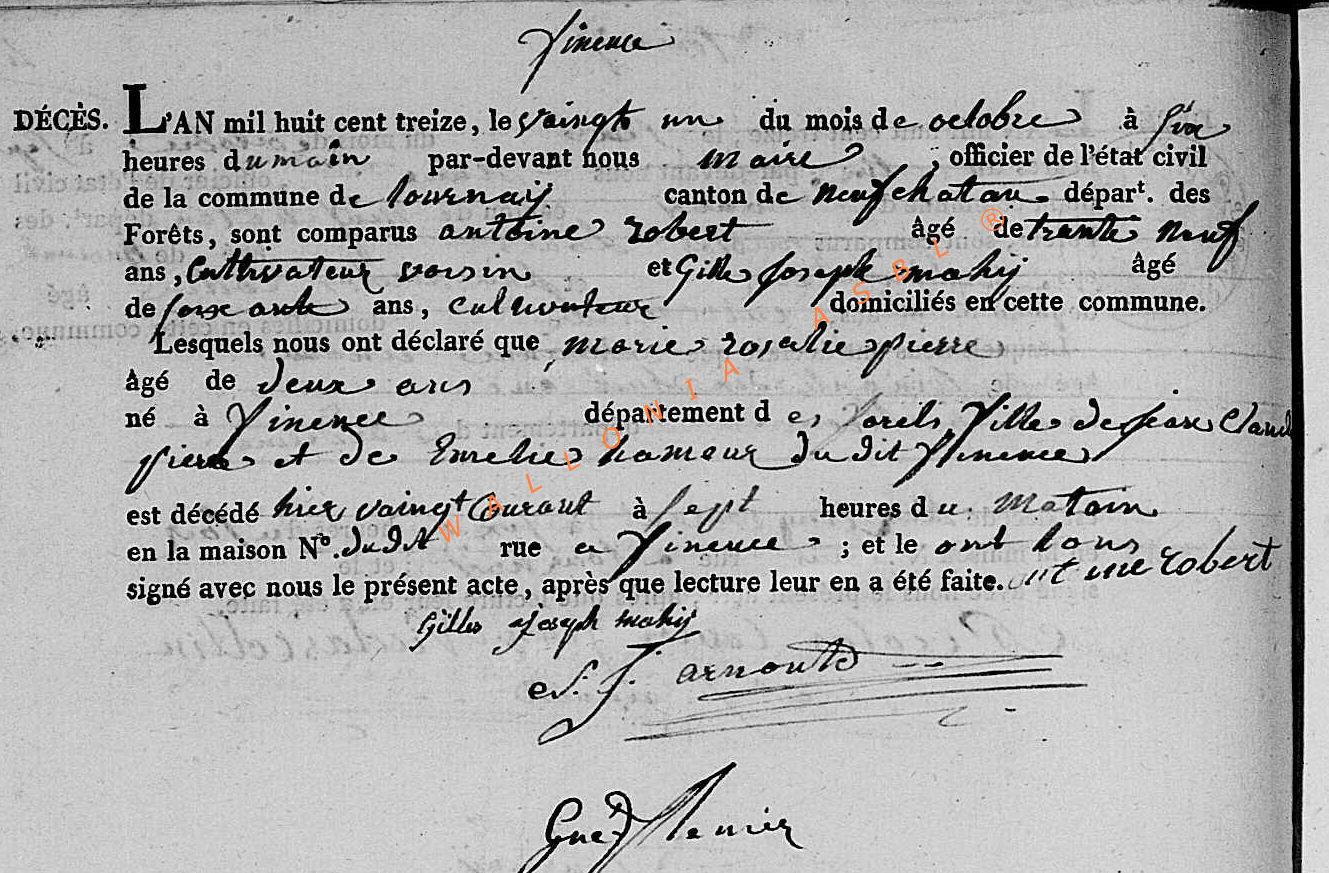 Vinence
DÉCÈS. L'AN mil huit cent treize, le vaingt un du mois de octobre à six
heures du main par-devant nous maire, officier de l'état civil
de la commune de tournay canton de neufchatau départ. des
Forêts, sont comparus antoine robert âgé de trante neuf
ans, Cultivateur voisin et Gille Joseph mahy âgé
de soixante ans, cultivateur domiciliés en cette commune.
Lesquels nous ont déclaré que marie rosalie pierre
âgé de deux ans
né à Vinence département d es forêts, fille de Jean Claud
pierre et de Emelie hameur dudit Vinence
est décédé hier vaingt Courant à sept heures du matain
en la maison No. dudit rue a Vinence ; et le ont tous
signé avec nous le présent acte, après que lecture leur en a été faite. robert
Gilles Joseph mahy
J. arnould
WALLONIA ASBL ®